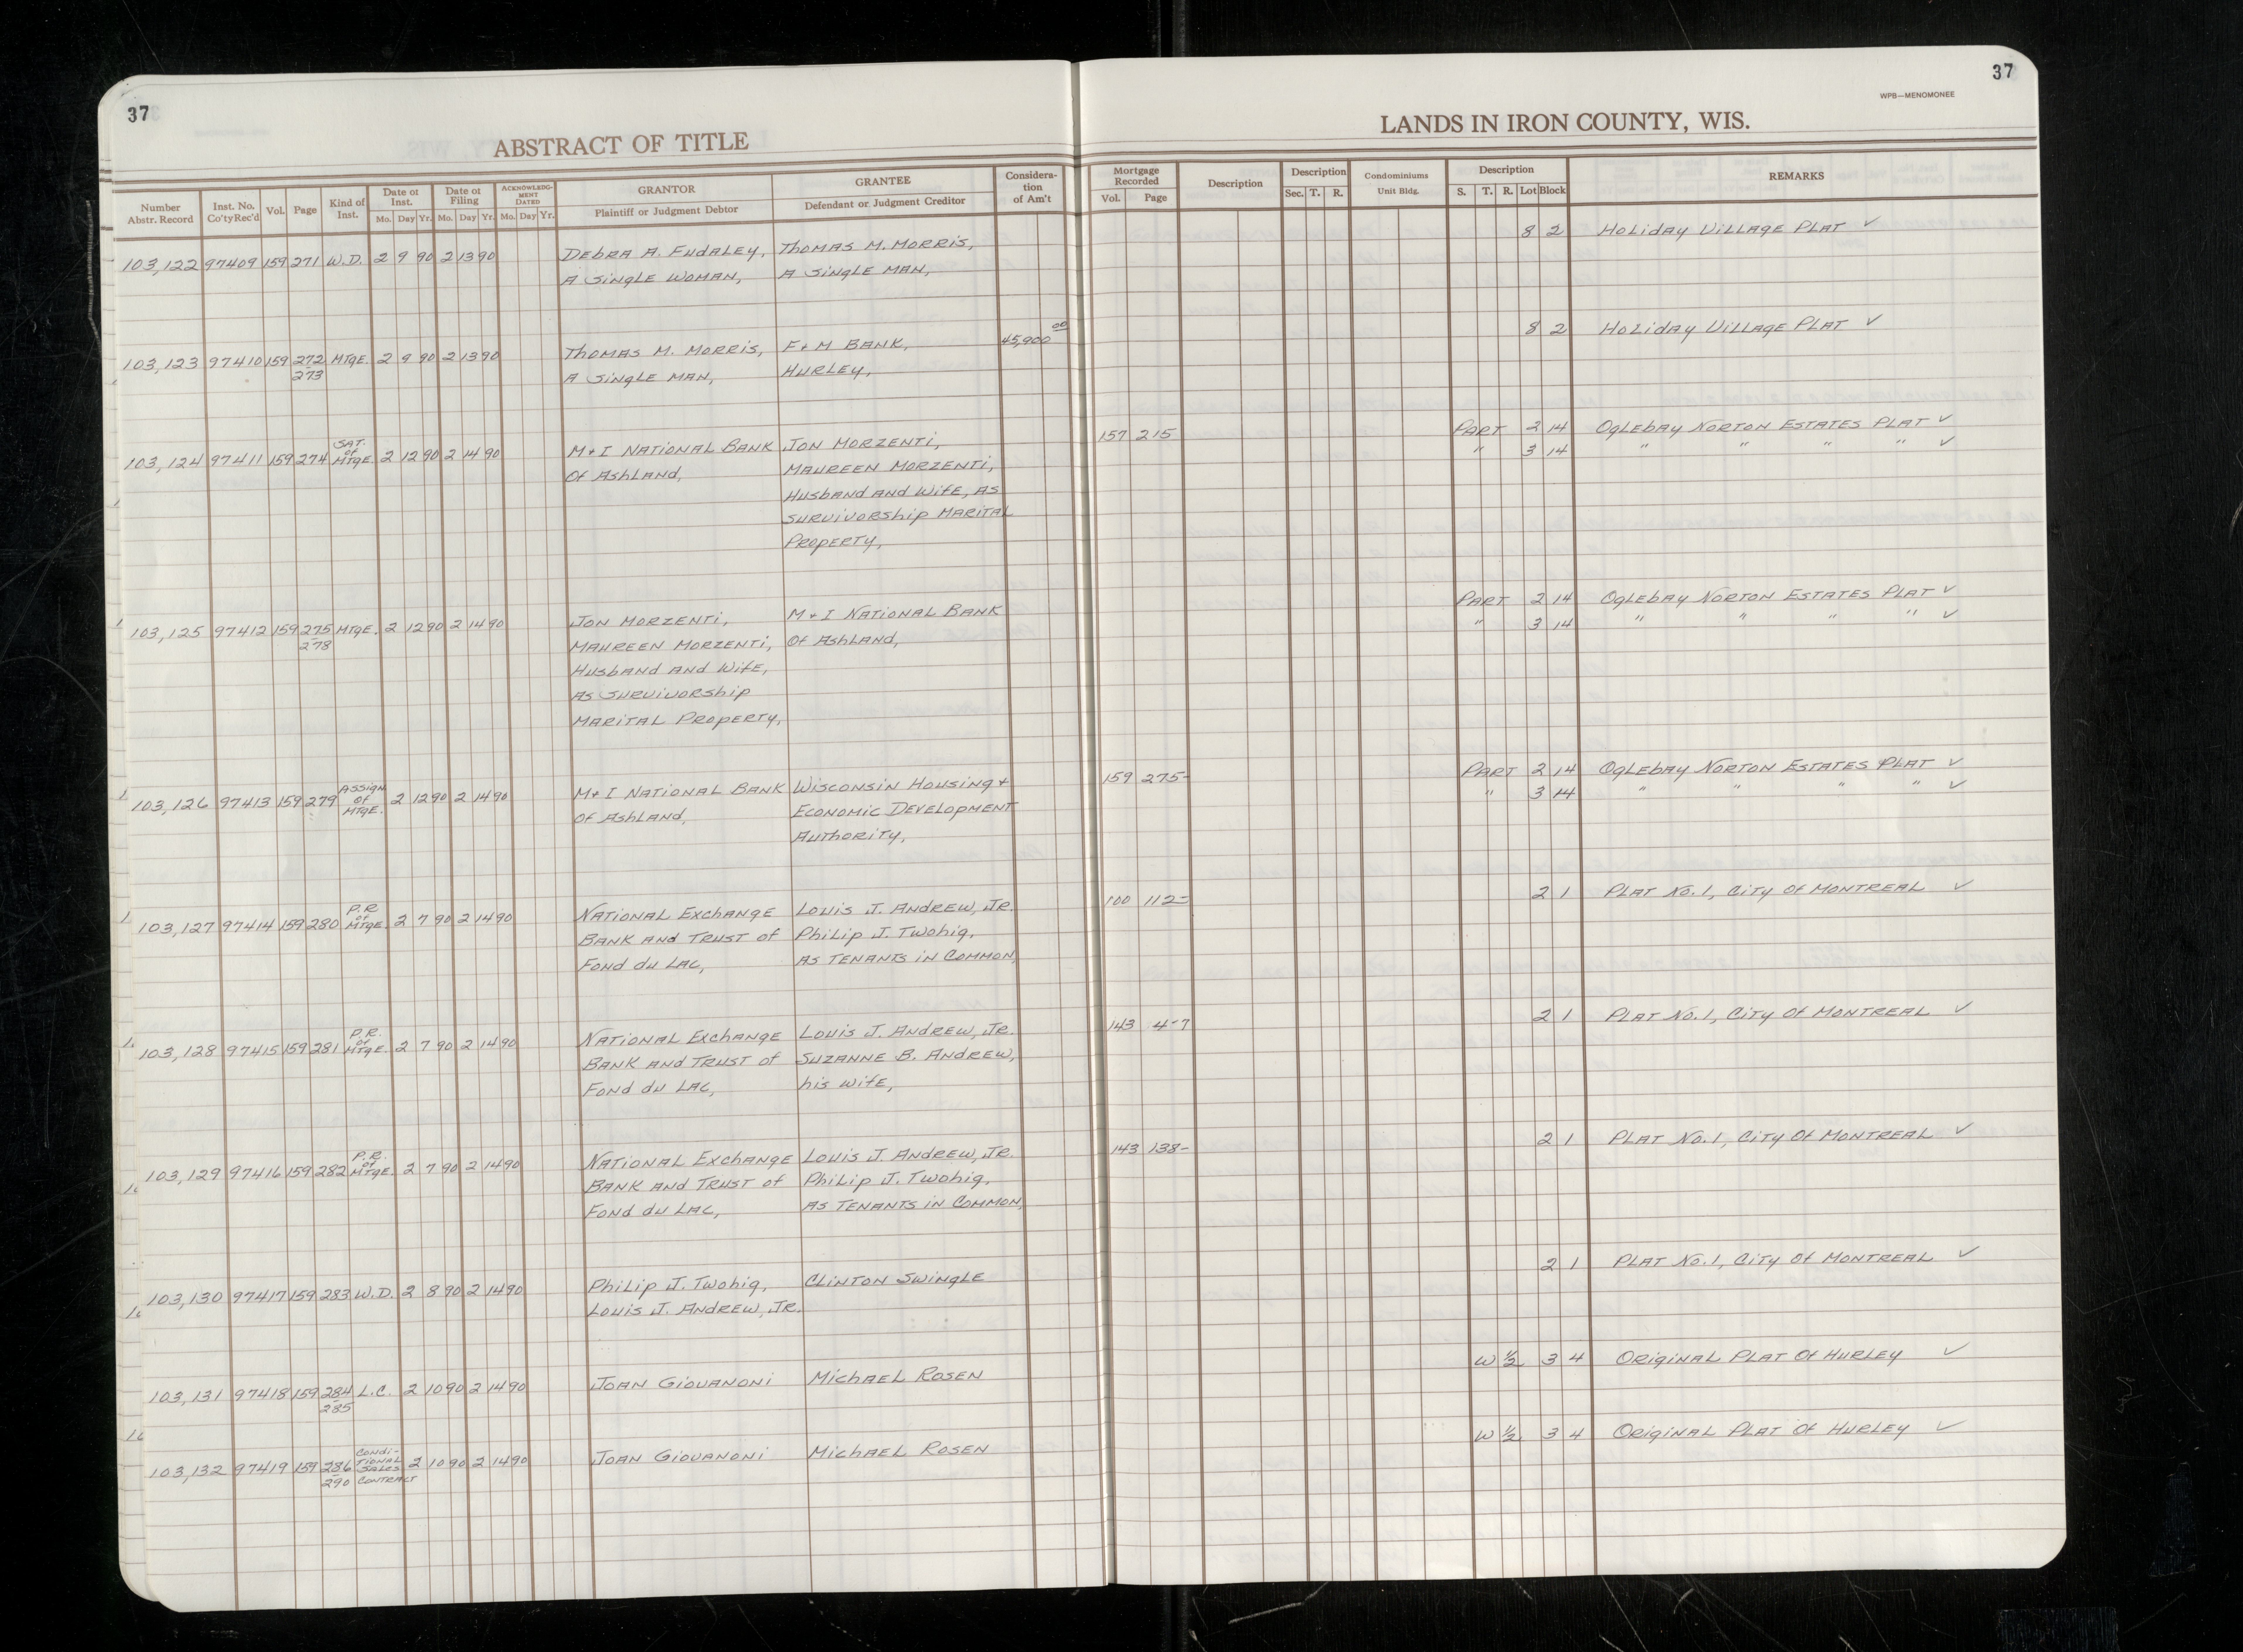 37
ABSTRACT OF TITLE
37
WPB—MENOMONEE
LANDS IN IRON COUNTY, WIS.
Number Abstr. Record | Inst. No. Co'tyRec'd | Vol. | Page | Kind of Inst. | Date of Inst. Mo. Day Yr. | Date of Filing Mo. Day Yr. | ACKNOWLEDG-MENT DATED Mo. Day Yr. | GRANTOR Plaintiff or Judgment Debtor | GRANTEE Defendant or Judgment Creditor | Considera-tion of Am't | Mortgage Recorded Vol. Page | Description | Description Sec. T. R. | Condominiums Unit Bldg. | Description S. T. R. Lot Block | REMARKS
103,122 97409 159 271 W.D. 2 9 90 2 13 90 Debra A. Fudaley, Thomas M. Morris, 8 2 Holiday Village Plat ✓
A Single Woman, A Single Man,
103,123 97410 159 272 Mtge. 2 9 90 2 13 90 Thomas M. Morris, F & M Bank, 45,900 00 8 2 Holiday Village Plat ✓
- 273 A Single Man, Hurley,
103,124 97411 159 274 Sat. of Mtge. 2 12 90 2 14 90 M & I National Bank Jon Morzenti, 157 215 Part 2 14 Oglebay Norton Estates Plat ✓
Of Ashland, Maureen Morzenti, " 3 14 " " " " ✓
Husband and Wife, as
Survivorship Marital
Property,
103,125 97412 159 275 Mtge. 2 12 90 2 14 90 Jon Morzenti, M & I National Bank Part 2 14 Oglebay Norton Estates Plat ✓
- 278 Maureen Morzenti, Of Ashland, " 3 14 " " " " ✓
Husband and Wife,
As Survivorship
Marital Property,
103,126 97413 159 279 Assign of Mtge. 2 12 90 2 14 90 M & I National Bank Wisconsin Housing & 159 275- Part 2 14 Oglebay Norton Estates Plat ✓
Of Ashland, Economic Development " 3 14 " " " " ✓
Authority,
103,127 97414 159 280 P.R. of Mtge. 2 7 90 2 14 90 National Exchange Louis J. Andrew, Jr. 100 112- 2 1 Plat No. 1, City Of Montreal ✓
Bank and Trust of Philip J. Twohig,
Fond du Lac, As Tenants in Common,
103,128 97415 159 281 P.R. of Mtge. 2 7 90 2 14 90 National Exchange Louis J. Andrew, Jr. 143 4-7 2 1 Plat No. 1, City Of Montreal ✓
Bank and Trust of Suzanne B. Andrew,
Fond du Lac, his wife,
103,129 97416 159 282 P.R. of Mtge. 2 7 90 2 14 90 National Exchange Louis J. Andrew, Jr. 143 138- 2 1 Plat No. 1, City Of Montreal ✓
Bank and Trust of Philip J. Twohig,
Fond du Lac, As Tenants in Common,
103,130 97417 159 283 W.D. 2 8 90 2 14 90 Philip J. Twohig, Clinton Swingle 2 1 Plat No. 1, City Of Montreal ✓
Louis J. Andrew, Jr.
103,131 97418 159 284 L.C. 2 10 90 2 14 90 Joan Giovanoni Michael Rosen W 1/2 3 4 Original Plat Of Hurley ✓
- 285
103,132 97419 159 286 Condi-tional Sales Contract 2 10 90 2 14 90 Joan Giovanoni Michael Rosen W 1/2 3 4 Original Plat Of Hurley ✓
- 290